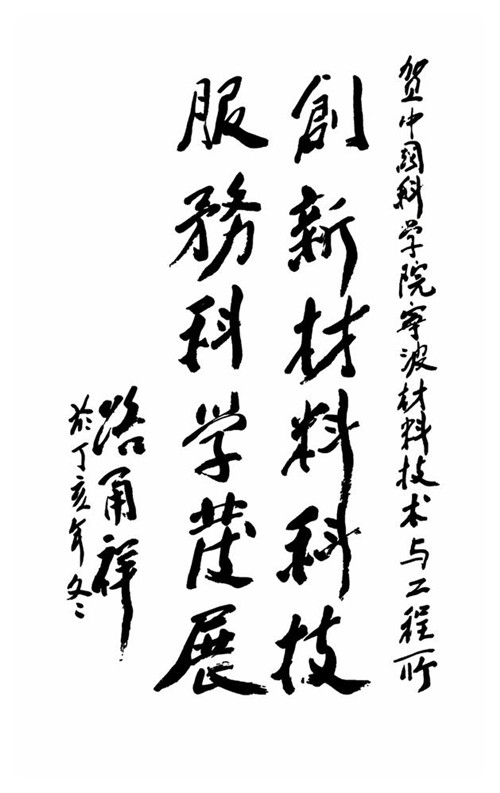 贺中国科学院宁波材料技术与工程所
創新材料科技
服務科学发展
路甬祥
於丁亥年冬